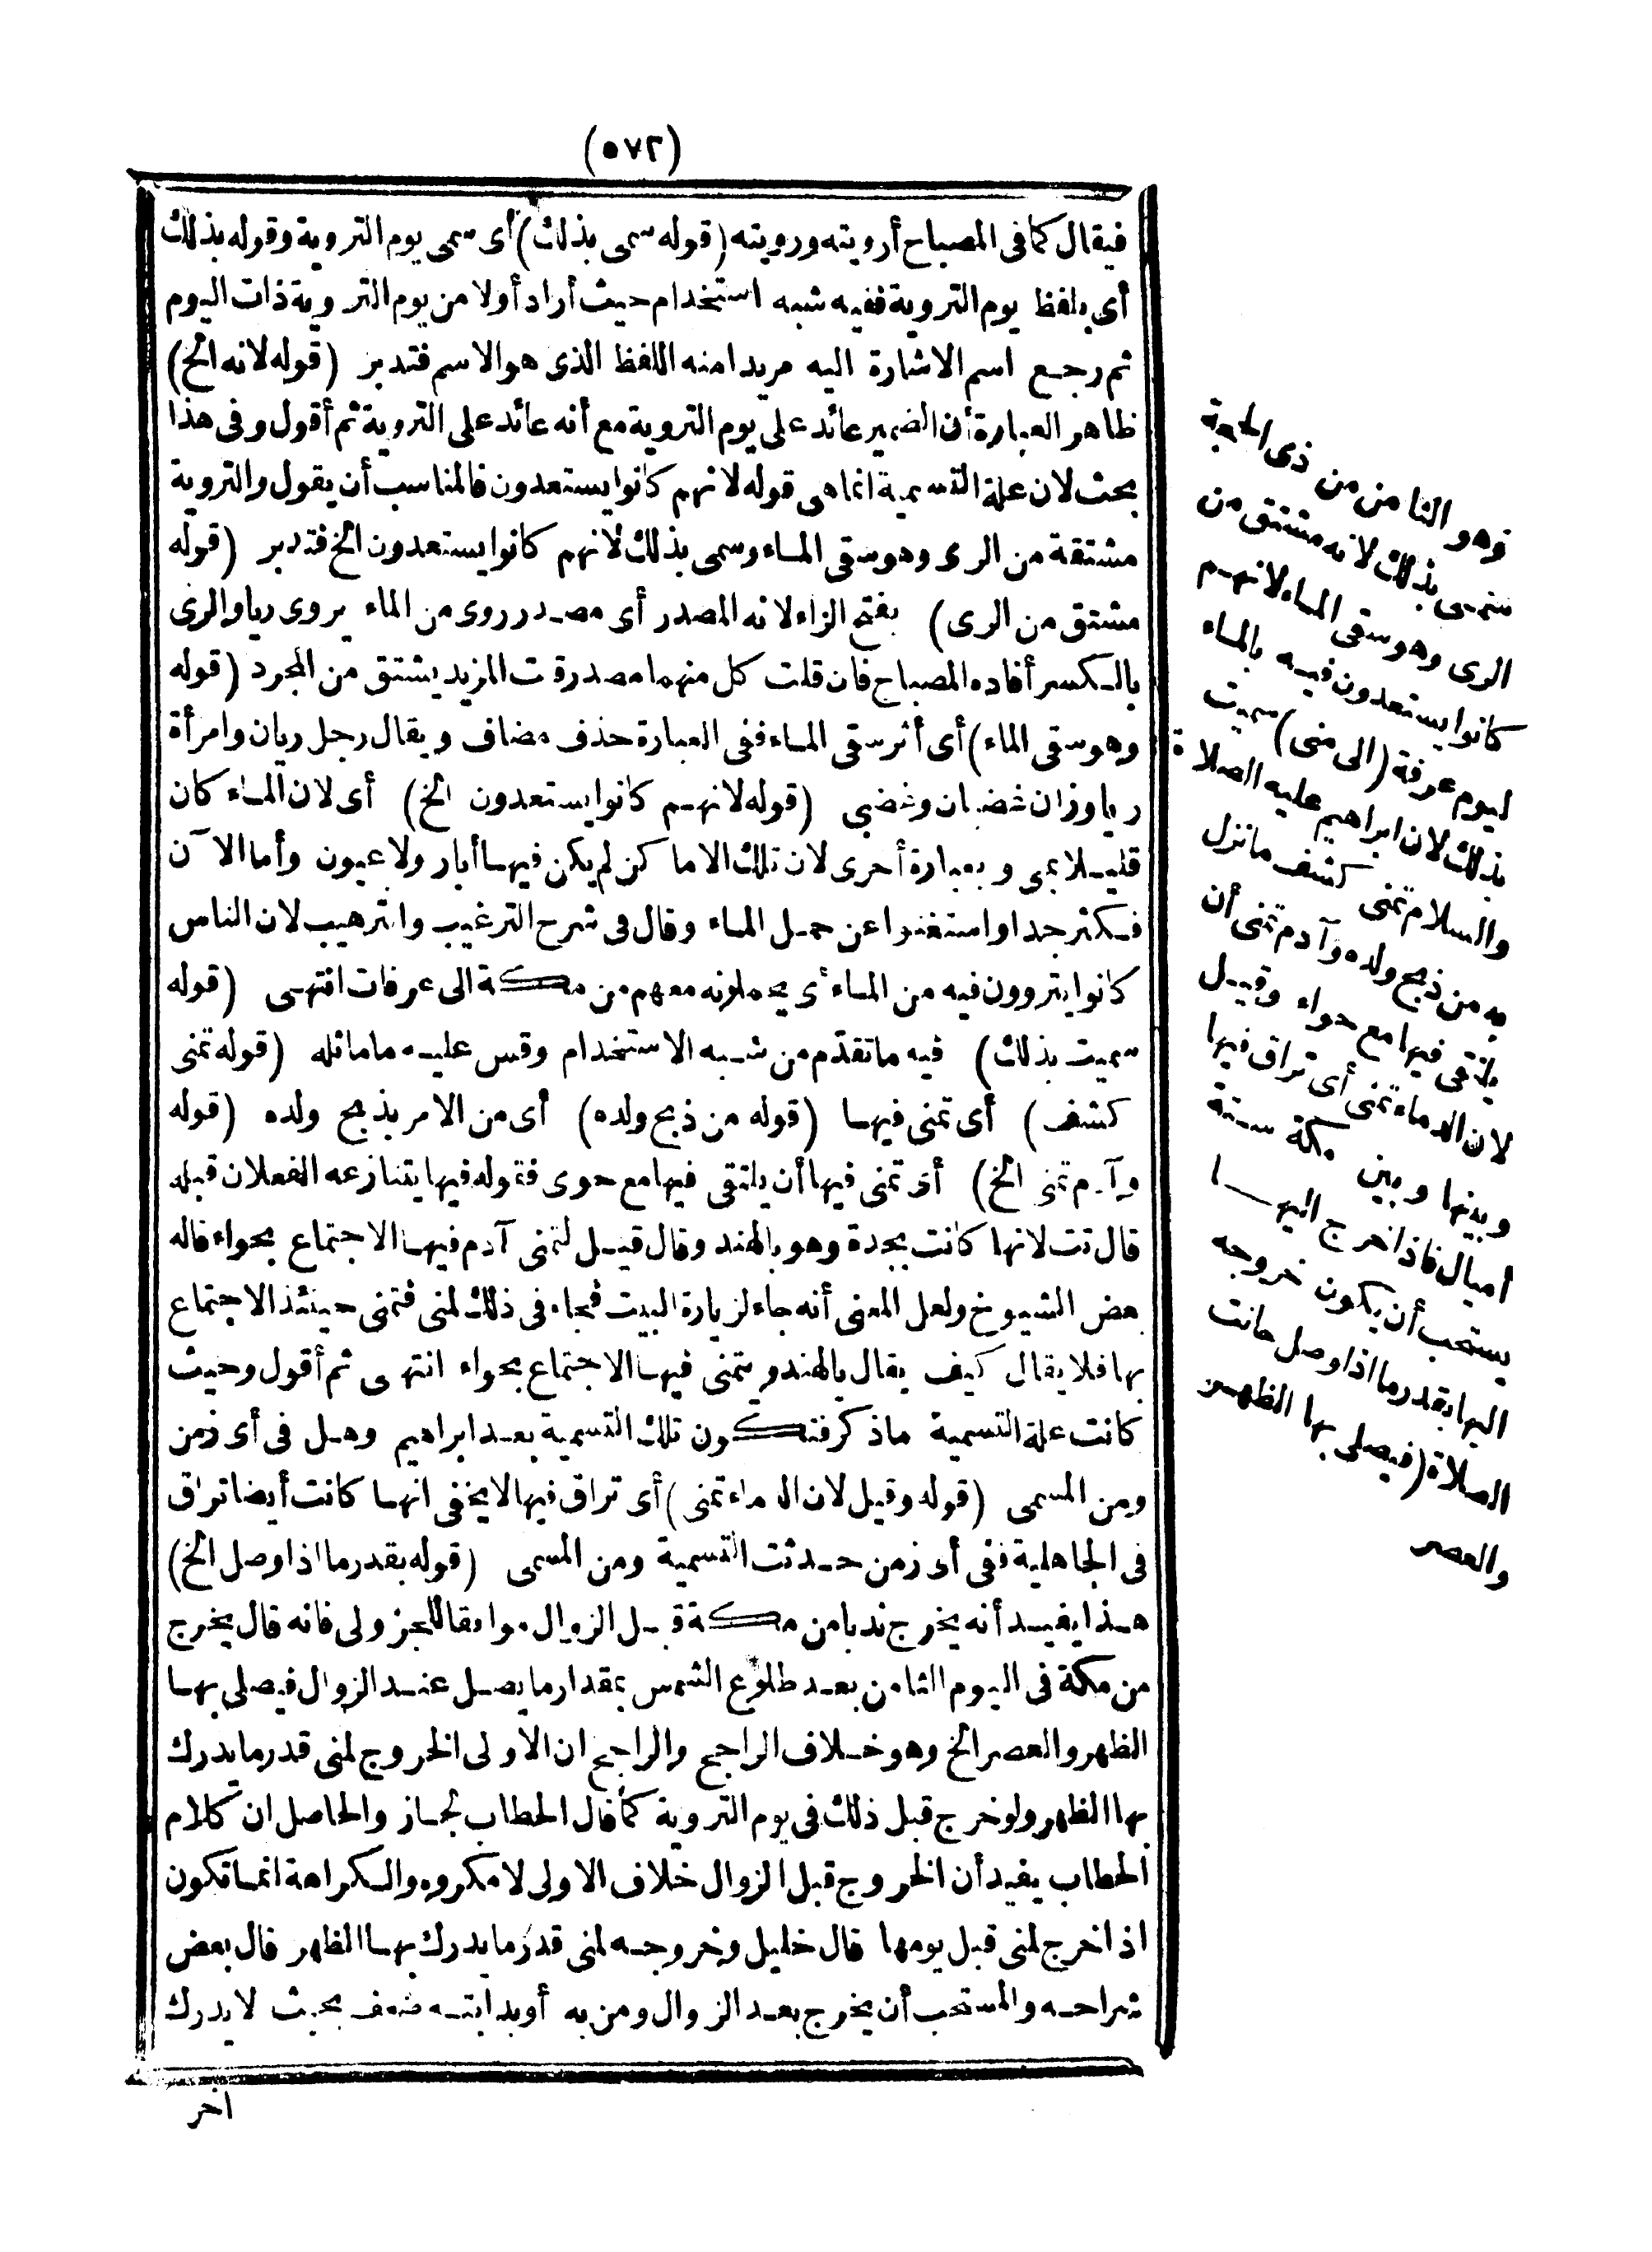 (٥٧٢)
فيقال كما فى المصباح أرويته ورويته (قوله سمى بذلك) أى سمى يوم التروية وقوله بذلك
أى بلفظ يوم التروية ففيه شبه استخدام حيث أراد أولا من يوم التروية ذات اليوم
ثم رجع اسم الاشارة اليه مريدا منه اللفظ الذى هو الاسم فتدبر (قوله لانه الخ)
ظاهر العبارة أن الضمير عائد على يوم التروية مع أنه عائد على التروية ثم أقول وفى هذا
بحث لان علة التسمية انما هى قوله لانهم كانوا يستعدون فالمناسب أن يقول والتروية
مشتقة من الرى وهو سقى الماء وسمى بذلك لانهم كانوا يستعدون الخ فتدبر (قوله
مشتق من الرى) بفتح الراء لانه المصدر أى مصدر روى من الماء يروى ريا والرى
بالكسر أفاده المصباح فان قلت كل منهما مصدر قلت المزيد يشتق من المجرد (قوله
وهو سقى الماء) أى أثر سقى الماء ففى العبارة حذف مضاف ويقال رجل ريان وامرأة
ريا وزان غضبان وغضبى (قوله لانهم كانوا يستعدون الخ) أى لان الماء كان
قليلا بمنى وبعبارة أخرى لان تلك الاماكن لم يكن فيها أبار ولا عيون وأما الآن
فكثر جدا واستغنوا عن حمل الماء وقال فى شرح الترغيب والترهيب لان الناس
كانوا يتروون فيه من الماء أى يحملونه معهم من مكة الى عرفات انتهى (قوله
سميت بذلك) فيه ما تقدم من شبه الاستخدام وقس عليه ما ماثله (قوله تمنى
كشف) أى تمنى فيها (قوله من ذبح ولده) أى من الامر بذبح ولده (قوله
وآدم تمنى الخ) أى تمنى فيها أن يلتقى فيها مع حوى فقوله فيها يتنازعه الفعلان قبله
قال تت لانها كانت بجدة وهو بالهند وقال قيل لتمنى آدم فيها الاجتماع بحواء قاله
بعض الشيوخ ولعل المعنى أنه جاء لزيارة البيت فجاء فى ذلك لمنى فتمنى حينئذ الاجتماع
بها فلا يقال كيف يقال بالهند ويتمنى فيها الاجتماع بحواء انتهى ثم أقول وحيث
كانت علة التسمية ما ذكر فتكون تلك التسمية بعد ابراهيم وهل فى أى زمن
ومن المسمى (قوله وقيل لان الدماء تمنى) أى تراق فيها لا يخفى انها كانت أيضا تراق
فى الجاهلية ففى أى زمن حدثت التسمية ومن المسمى (قوله بقدر ما اذا وصل الخ)
هذا يفيد أنه يخرج ندبا من مكة قبل الزوال موافقا للجزولى فانه قال يخرج
من مكة فى اليوم الثامن بعد طلوع الشمس بمقدار ما يصل عند الزوال فيصلى بها
الظهر والعصر الخ وهو خلاف الراجح والراجح ان الاولى الخروج لمنى قدر ما يدرك
بها الظهر ولو خرج قبل ذلك فى يوم التروية كما قال الحطاب لجاز والحاصل ان كلام
الحطاب يفيد أن الخروج قبل الزوال خلاف الاولى لا مكروه والكراهة انما تكون
اذا خرج لمنى قبل يومها قال خليل وخروجه لمنى قدر ما يدرك بها الظهر قال بعض
شراحه والمستحب أن يخرج بعد الزوال ومن به أو بدابته ضعف بحيث لا يدرك
اخر
وهو الثامن من ذى الحجة
سمى بذلك لانه مشتق من
الرى وهو سقى الماء لانهم
كانوا يستعدون فيه بالماء
ليوم عرفة (الى منى) سميت
بذلك لان ابراهيم عليه الصلاة
والسلام تمنى كشف ما نزل
به من ذبح ولده وآدم تمنى أن
يلتقى فيها مع حواء وقيل
لان الدماء تمنى أى تراق فيها
وبينها وبين مكة ستة
أميال فاذا خرج اليها
يستحب أن يكون خروجه
اليها بقدر ما اذا وصل حانت
الصلاة (فيصلى بها الظهر
والعصر